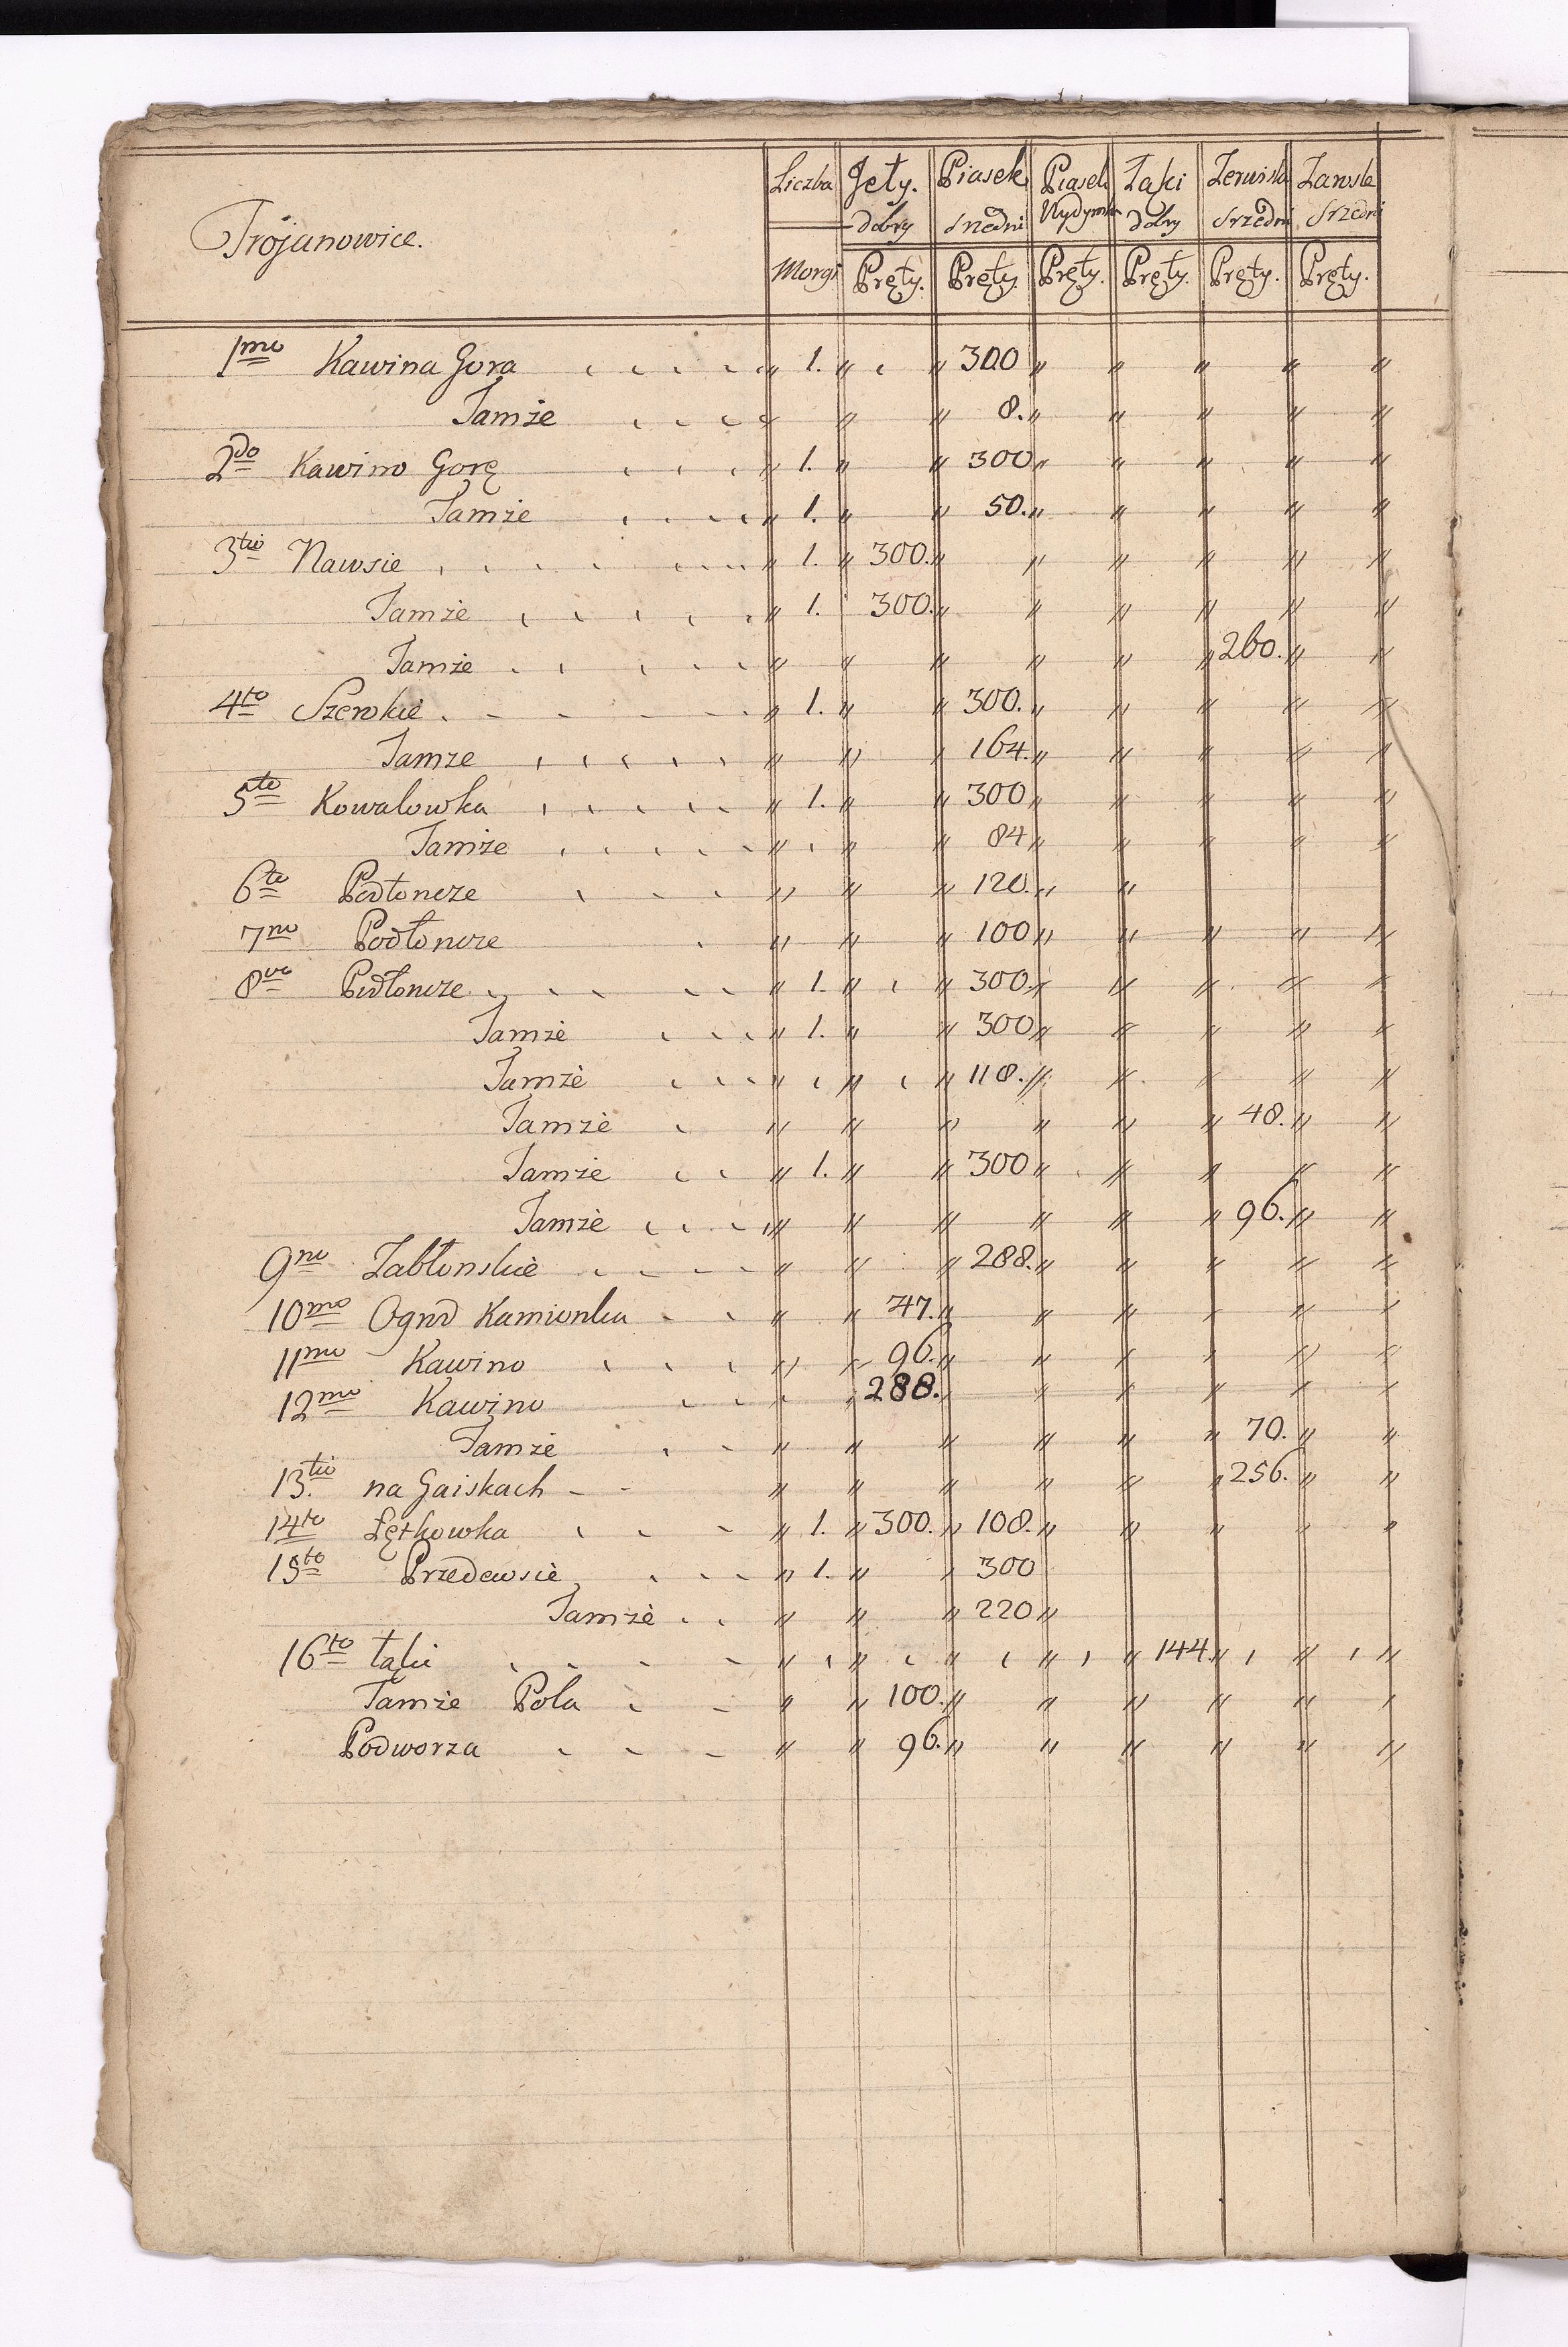 Trojanowice.
Liczba Jeły. Piasek Piasek Łąki Zerwiska Zawsle
dobry srzedni Wydymka dobry Srzedni Srzedni
Morgi Pręty. Pręty. Pręty. Pręty. Pręty. Pręty.
1mo Kawina Gora 1. 300
Tamże 8.
2do Kawino Gorę 1. 300
Tamże 1. 50.
3tio Nawsie 1. 300.
Tamże 1. 300.
Tamże 260.
4to Szerokie 1. 300.
Tamze 164.
5to Kowalowka 1. 300
Tamże 84
6to Podłoncze 120.
7mo Podłoncze 100
8vo Podłoncze 1. 300.
Tamże 1. 300
Tamże 118.
Tamże 48.
Tamże 1. 300
Tamże 96.
9no Zabłonskie 288.
10mo Ogrod Kamionka 47.
11mo Kawino 96.
12mo Kawino 288.
Tamże 70.
13tio na Gaiskach 256.
14to Łętkowka 1. 300. 108.
15to Przedewsie 1. 300
Tamże 220
16to łąki 144
Tamże Pola 100.
Podworza 96.